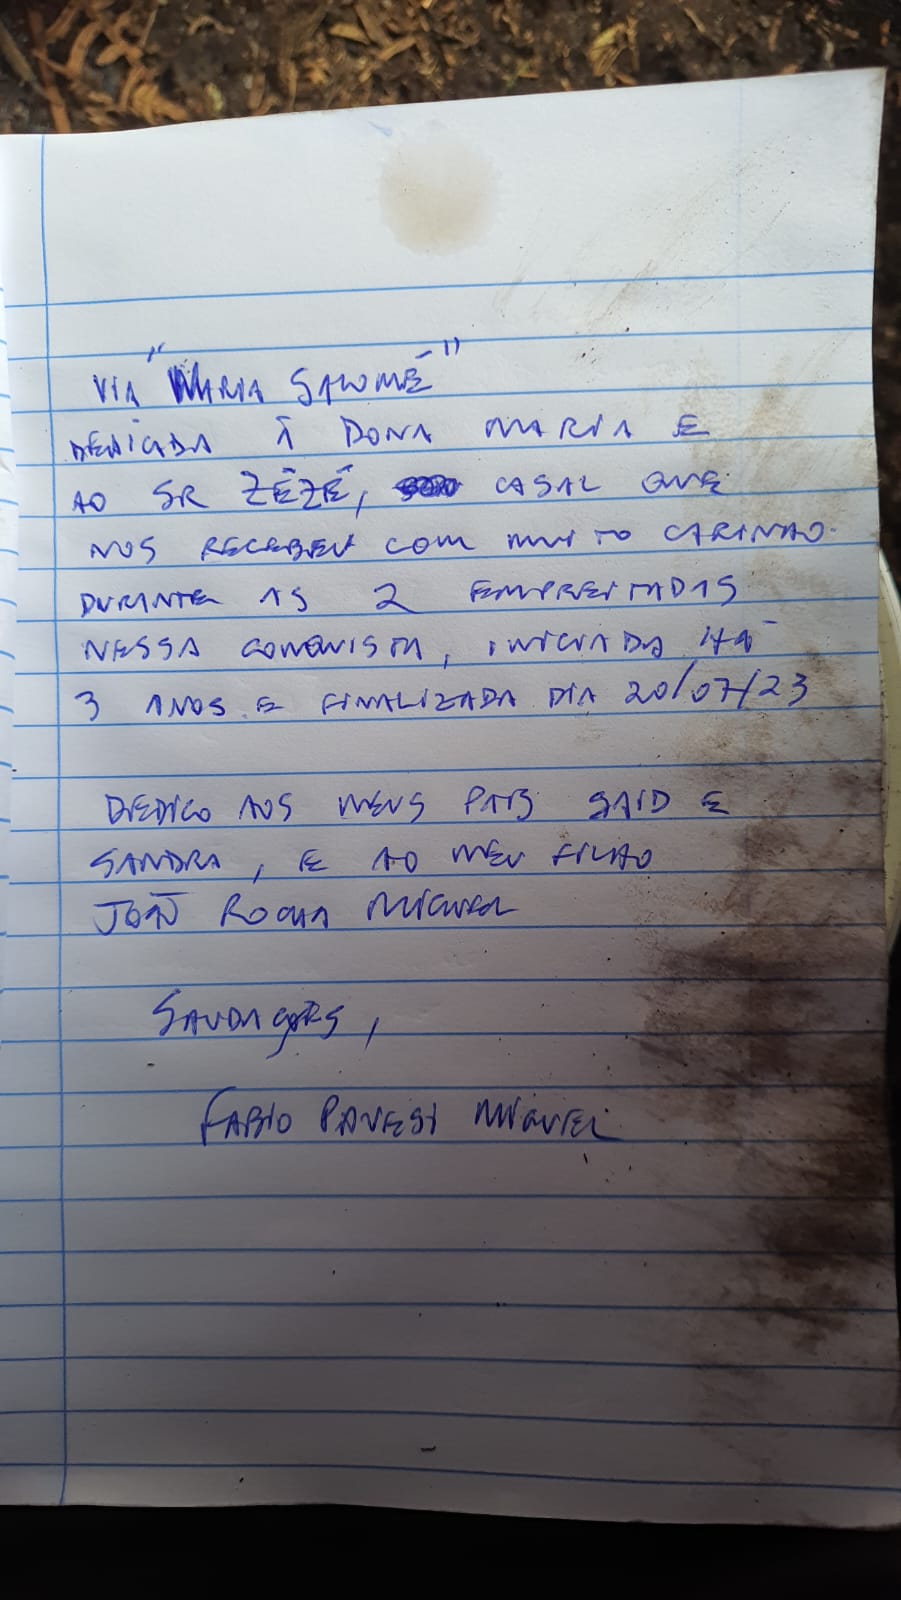 VIA "MARIA SALOMÉ"
DEDICADA À DONA MARIA E
AO SR ZÉZÉ, CASAL QUE
NOS RECEBEU COM MUITO CARINHO
DURANTE AS 2 EMPREITADAS
NESSA CONQUISTA, INICIADA HÁ
3 ANOS E FINALIZADA DIA 20/07/23
DEDICO AOS MEUS PAIS SAID E
SANDRA, E AO MEU FILHO
JOÃO ROCHA MIGUEL
SAUDAÇÕES,
FABIO PAVESI MIGUEL